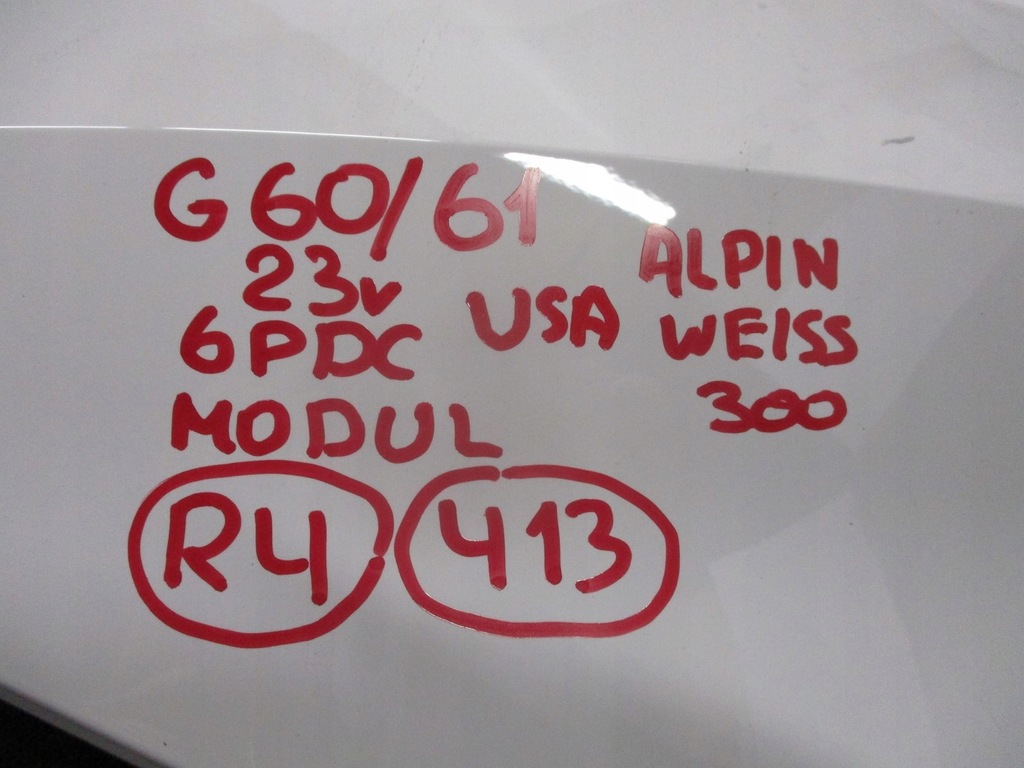 G60/61
23v
6PDC
MODUL
USA
ALPIN
WEISS
300
R4
413